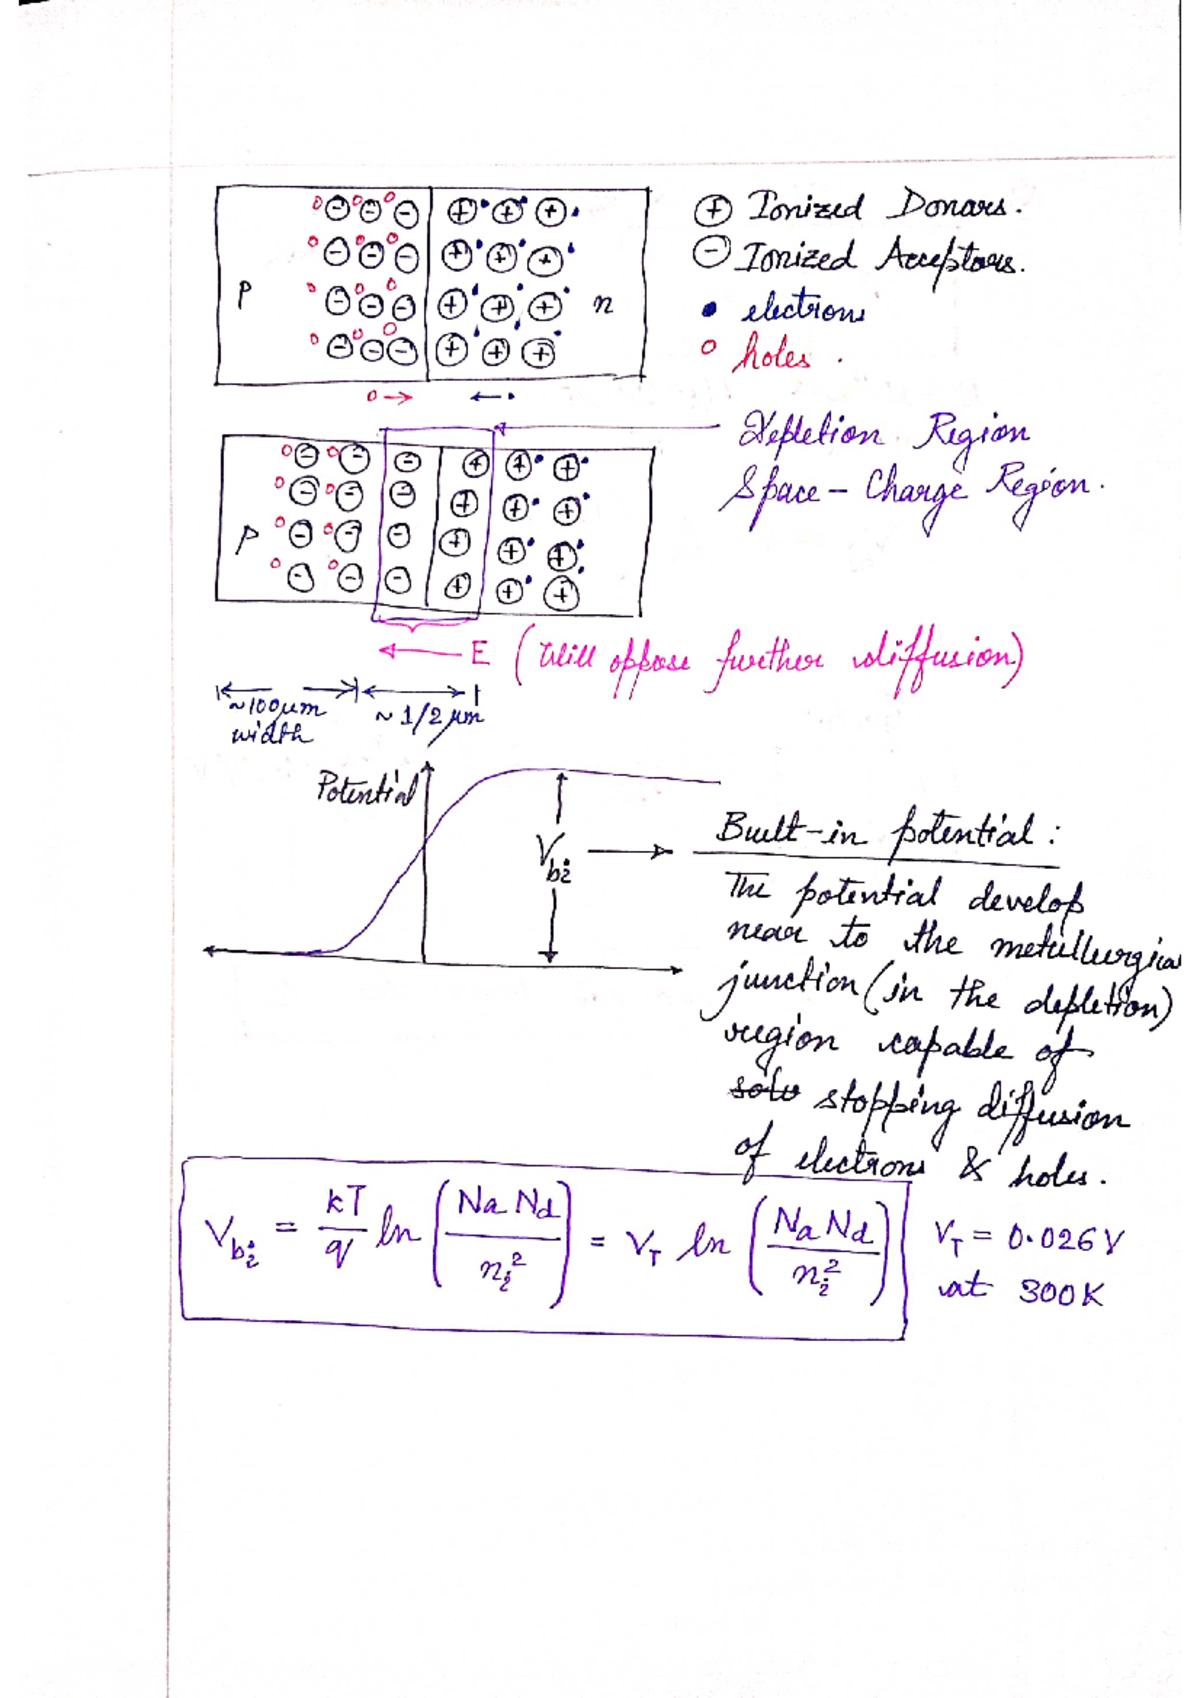 p
n
⊕ Ionized Donars.
⊖ Ionized Acceptors.
• electrons
o holes.
Depletion Region
Space-Charge Region.
P
E (Will oppose further diffusion)
~100μm
width
~ 1/2 μm
Potential
Vbi
Built-in potential :
The potential develop
near to the metullurgica
junction (in the depletion)
region capable of
stopping diffusion
of electrons & holes.
Vbi = kT/q ln (Na Nd / ni²) = VT ln (Na Nd / ni²)
VT = 0.026 V
at 300K